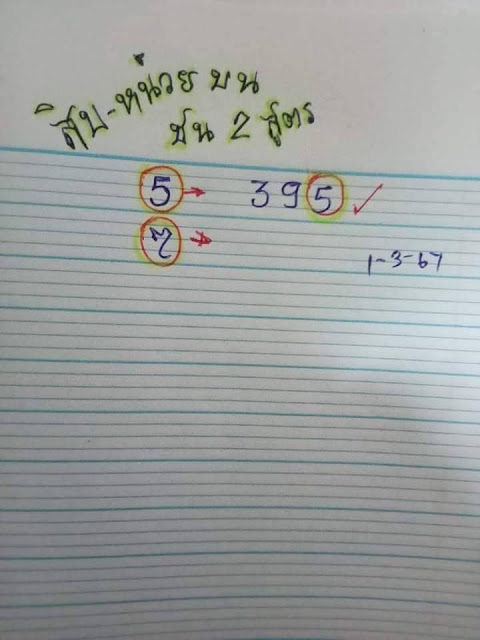 สิบ-หน่วย บน
ชน 2 สูตร
5 → 395 ✓
7 →
1-3-67